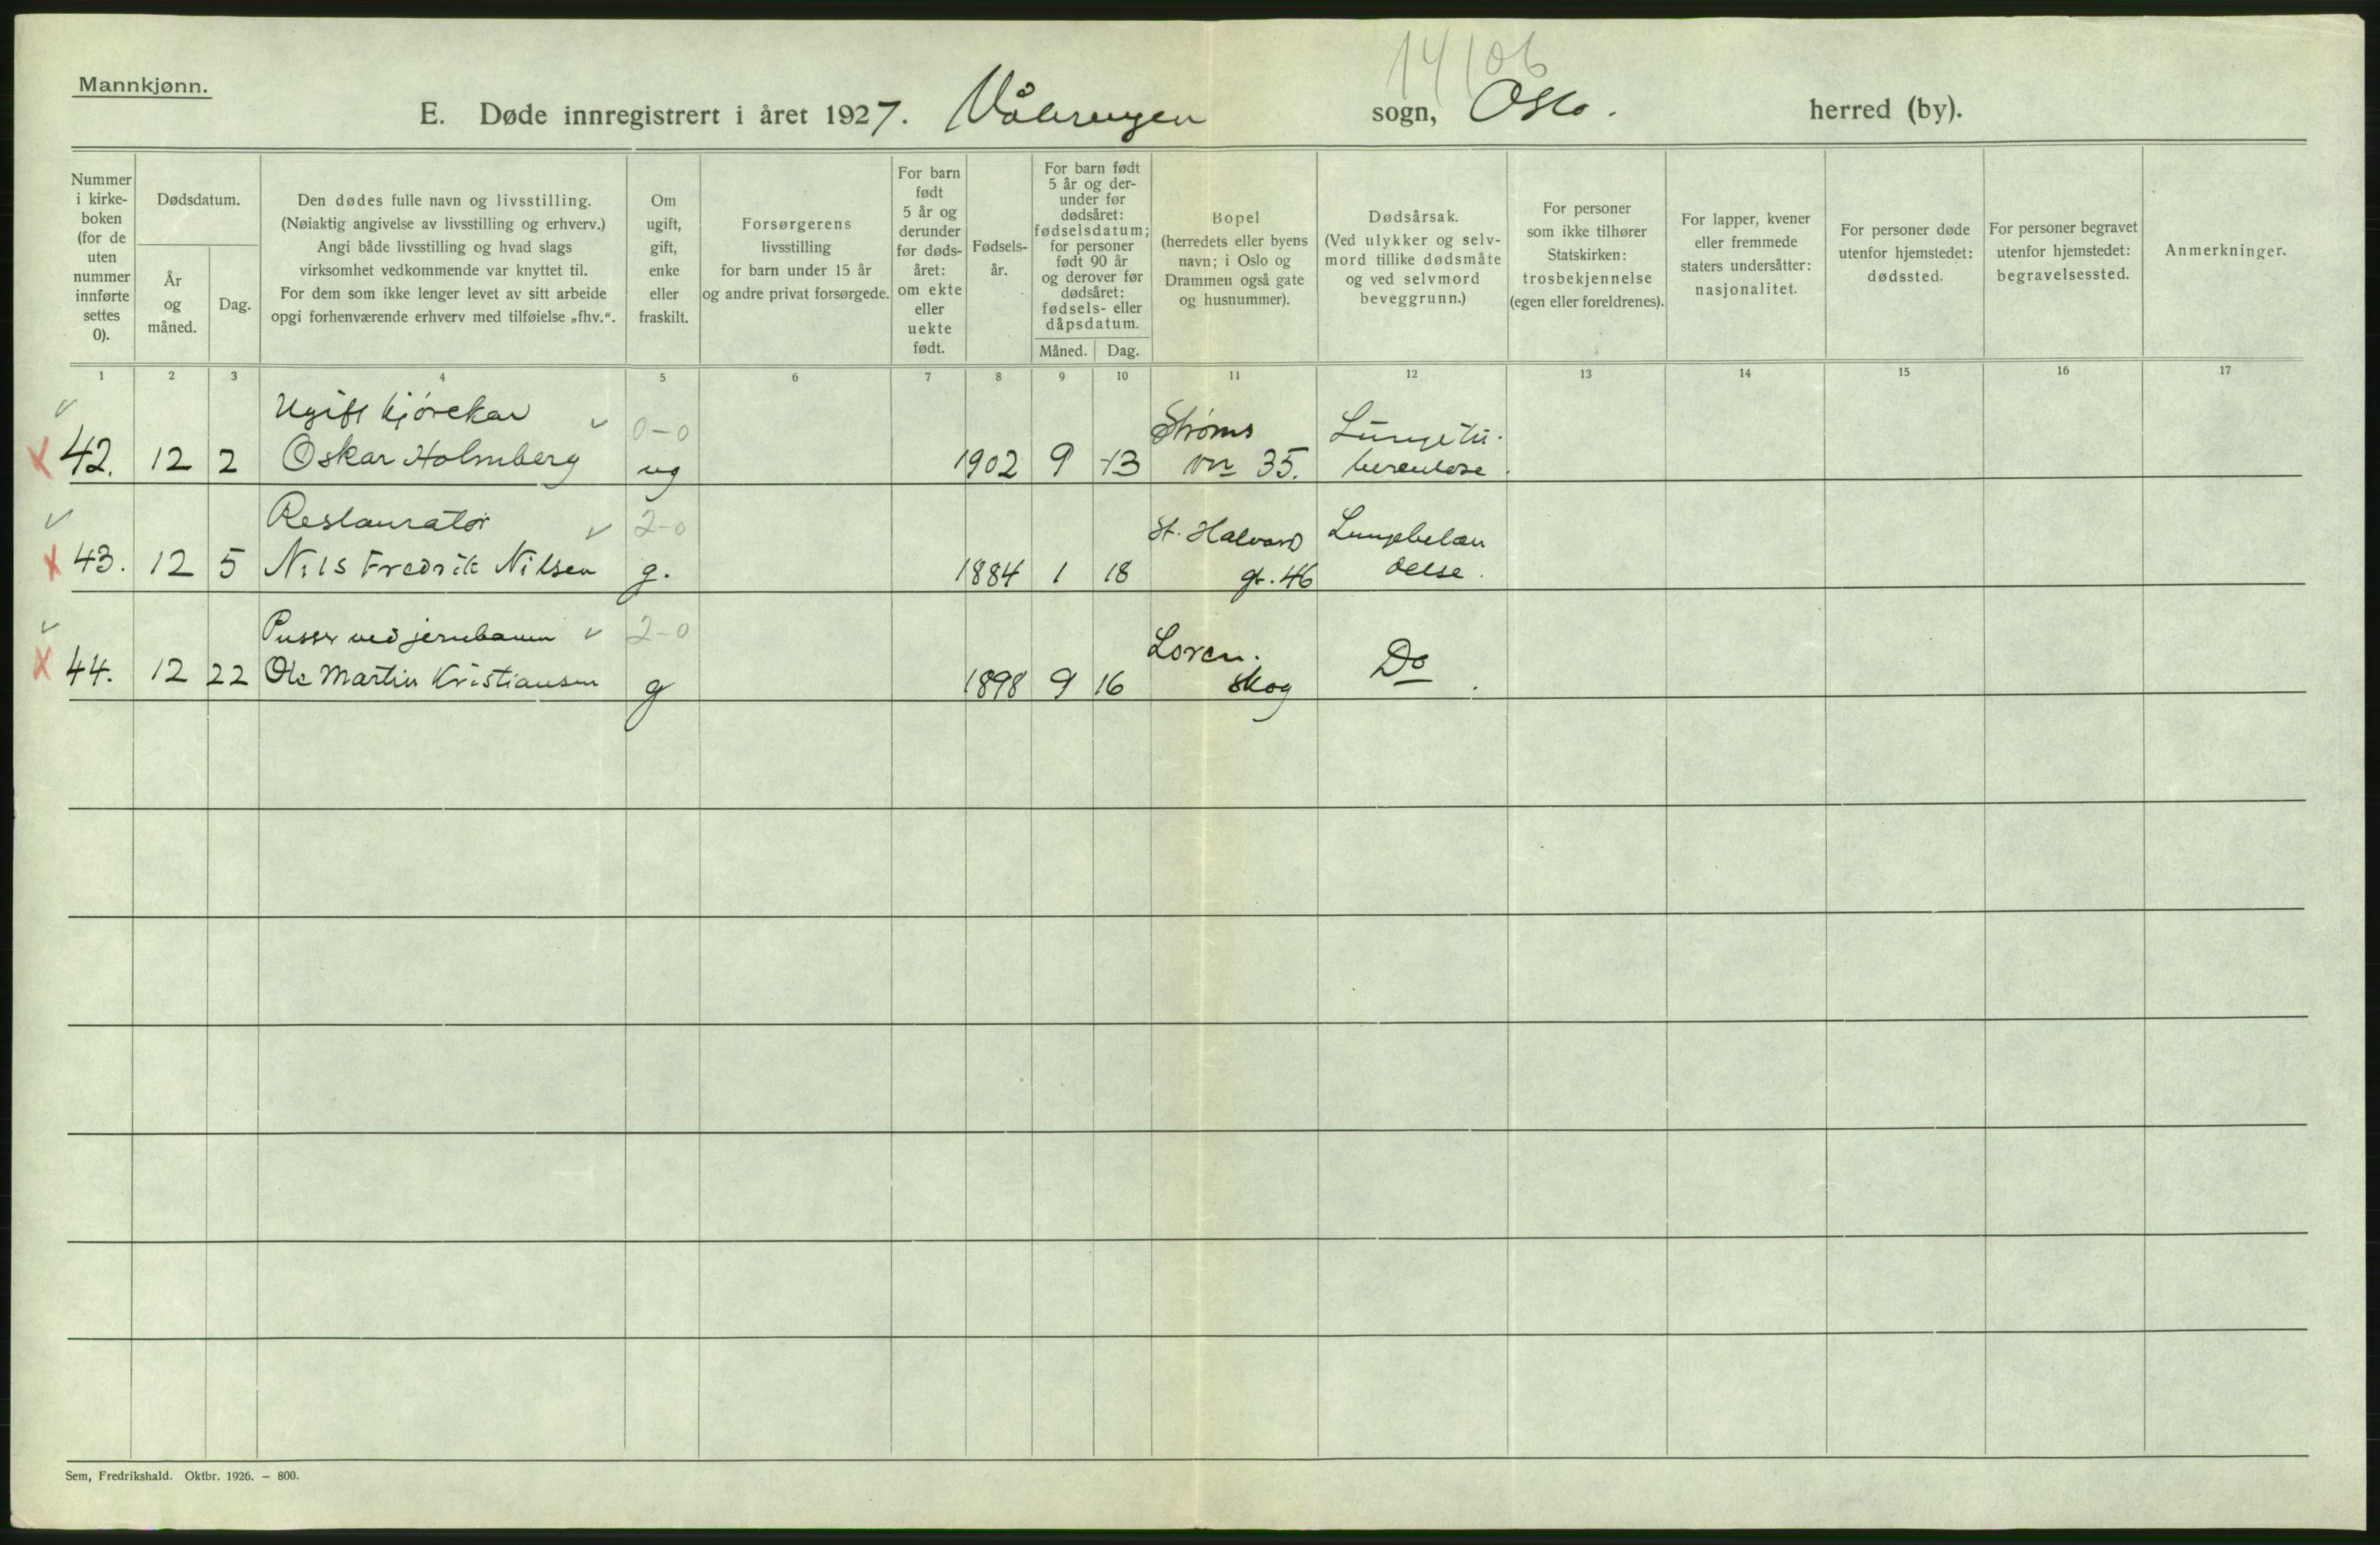 14/06
Mannkjønn.
E. Døde innregistrert i året 1927. Vålerengen sogn, Oslo. herred (by).
Nummer
i kirke-
boken
(for de
uten
nummer
innførte
settes
0).
Dødsdatum.
År
og
måned.
Dag.
Den dødes fulle navn og livsstilling.
(Nøiaktig angivelse av livsstilling og erhverv.)
Angi både livsstilling og hvad slags
virksomhet vedkommende var knyttet til.
For dem som ikke lenger levet av sitt arbeide
opgi forhenværende erhverv med tilføielse „fhv.“.
Om
ugift,
gift,
enke
eller
fraskilt.
Forsørgerens
livsstilling
for barn under 15 år
og andre privat forsørgede.
For barn
født
5 år og
derunder
før døds-
året:
om ekte
eller
uekte
født.
Fødsels-
år.
For barn født
5 år og der-
under før
dødsåret:
fødselsdatum;
for personer
født 90 år
og derover før
dødsåret:
fødsels- eller
dåpsdatum.
Måned. Dag.
Bopel
(herredets eller byens
navn; i Oslo og
Drammen også gate
og husnummer).
Dødsårsak.
(Ved ulykker og selv-
mord tillike dødsmåte
og ved selvmord
beveggrunn.)
For personer
som ikke tilhører
Statskirken:
trosbekjennelse
(egen eller foreldrenes).
For lapper, kvener
eller fremmede
staters undersåtter:
nasjonalitet.
For personer døde
utenfor hjemstedet:
dødssted.
For personer begravet
utenfor hjemstedet:
begravelsessted.
Anmerkninger.
1 2 3 4 5 6 7 8 9 10 11 12 13 14 15 16 17
Ugift kjørekar 0-0 Strøms Lungetu-
42. 12 2 Oskar Holmberg ug 1902 9 13 vn 35. berculose.
Restauratør 2-0 St. Halvard Lungebetæn
43. 12 5 Nils Fredrik Nilsen g. 1884 1 18 gt. 46 delse.
Pusser ved jernbanen 2-0 Loren-
44. 12 22 Ole Martin Kristiansen g 1898 9 16 skog Do.
Sem, Fredrikshald. Oktbr. 1926. – 800.